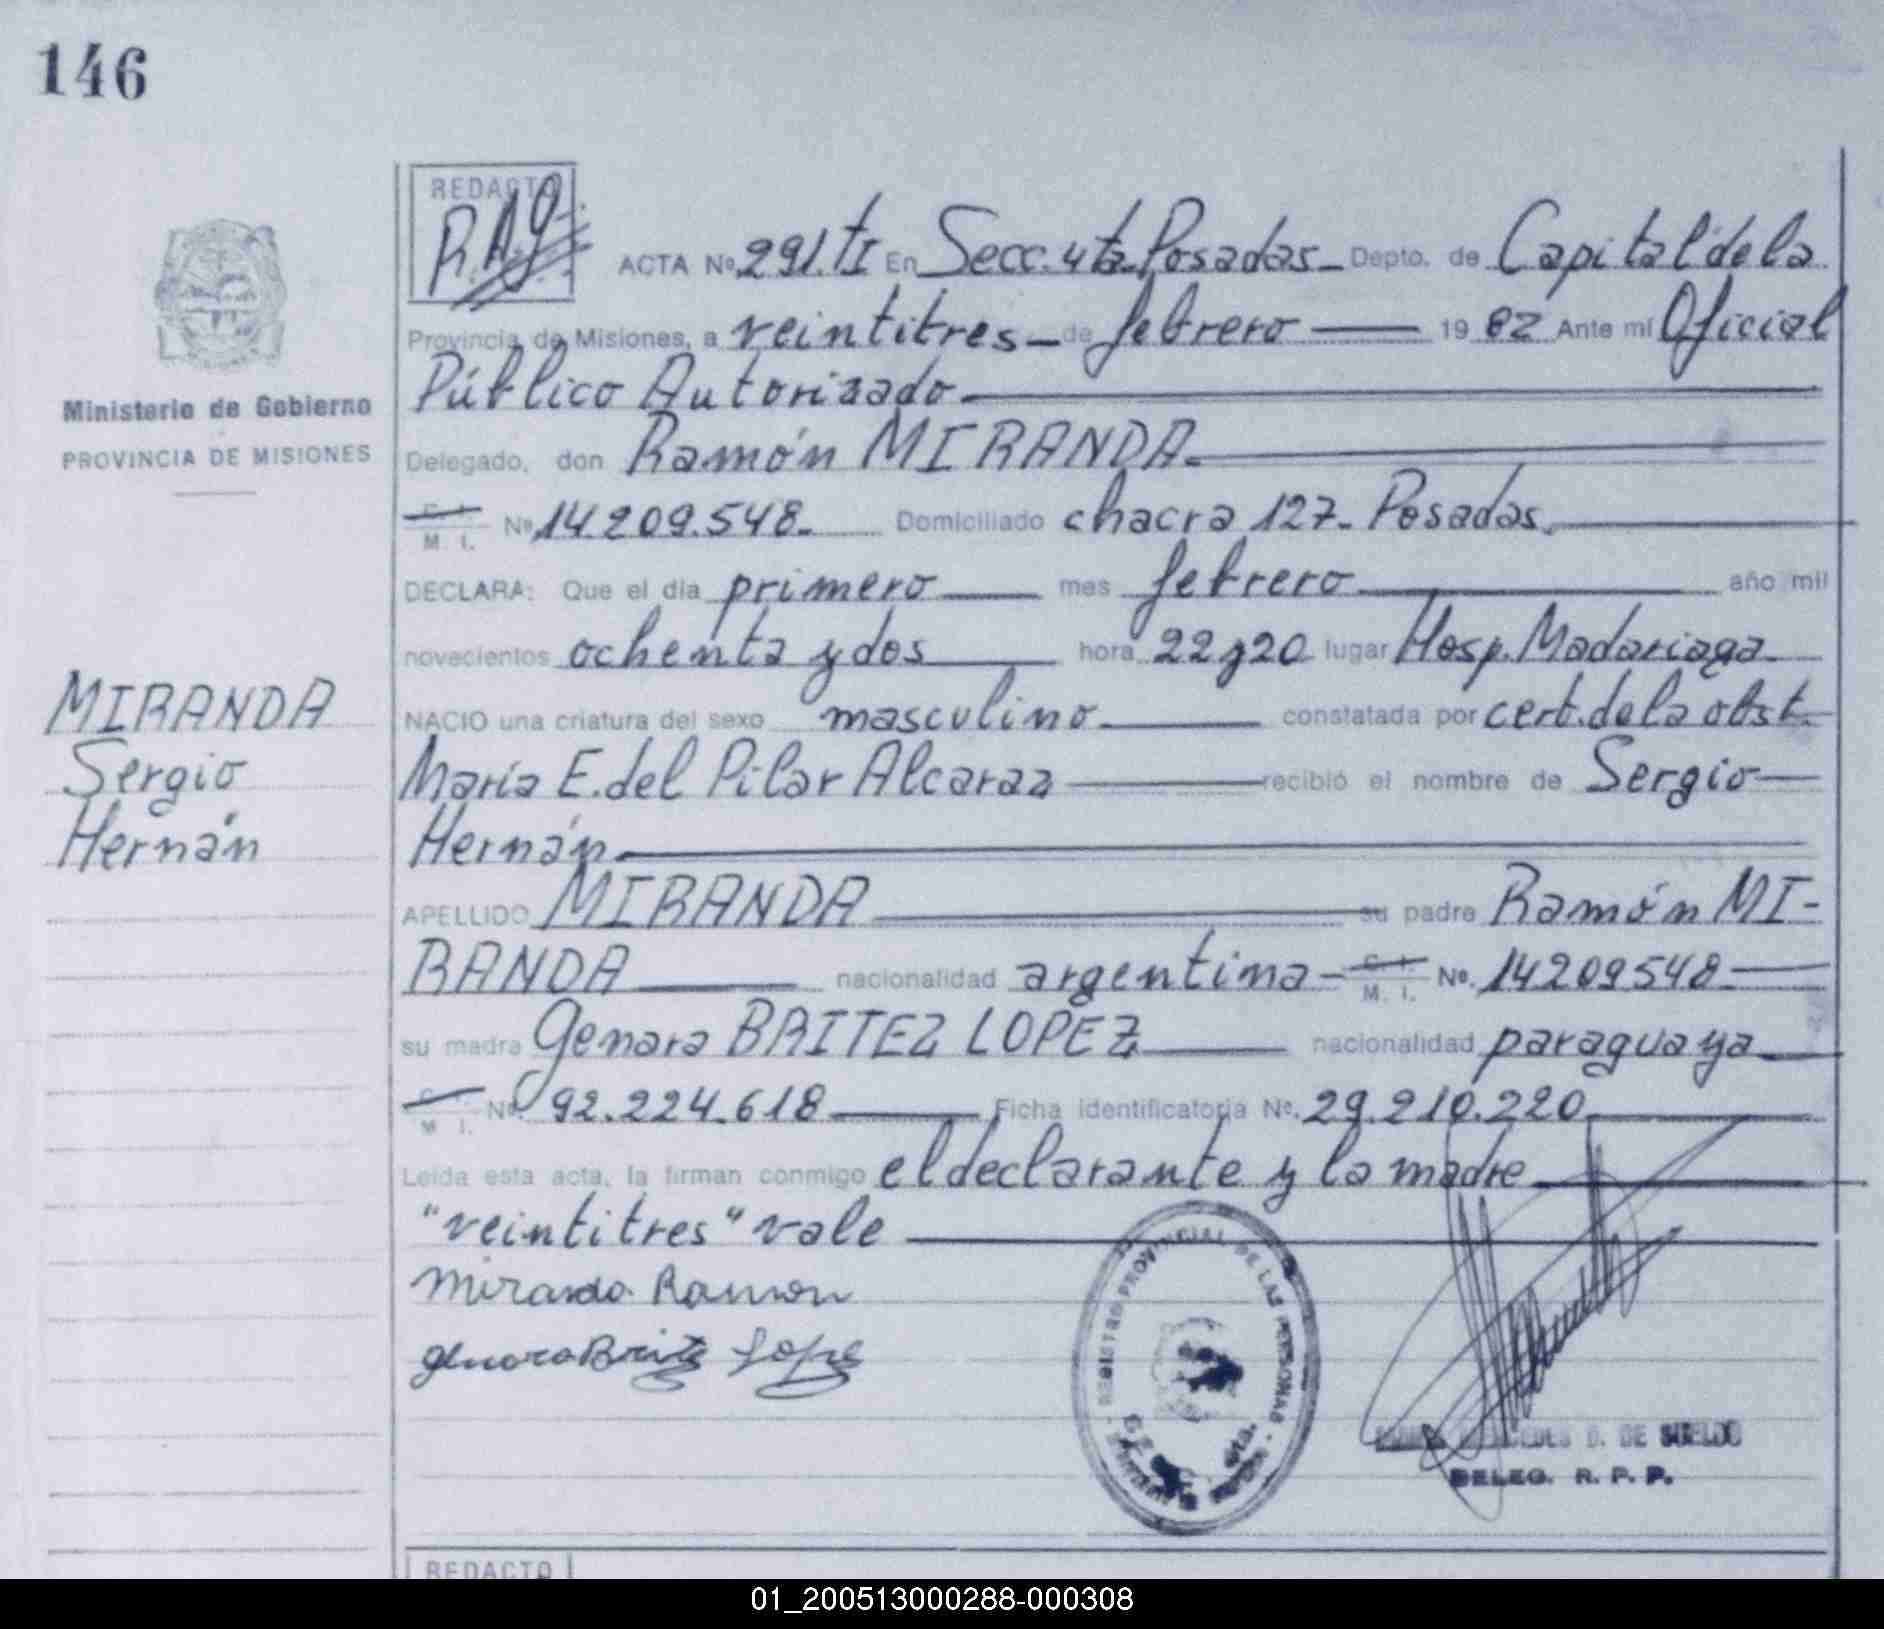 146
REDACTO
R.A.G.
ACTA Nº 291.TI En Secc. 4ta. Posadas Depto. de Capital de la
Provincia de Misiones, a veintitres de febrero 19 82 Ante mí Oficial
Público Autorizado
Ministerio de Gobierno
PROVINCIA DE MISIONES
Delegado, don Ramón MIRANDA
C. I. M. I. Nº 14.209.548 Domiciliado chacra 127 - Posadas
DECLARA: Que el día primero mes febrero año mil
novecientos ochenta y dos hora 22 y 20 lugar Hosp. Madariaga
MIRANDA
Sergio
Hernán
NACIO una criatura del sexo masculino constatada por cert. de la obst.
María E. del Pilar Alcaraz recibió el nombre de Sergio
Hernán
APELLIDO MIRANDA su padre Ramón MI-
RANDA nacionalidad argentina C. I. M. I. Nº. 14209548
su madre Genara BRITEZ LOPEZ nacionalidad paraguaya
C. I. M. I. Nº. 92.224.618 Ficha identificatoria Nº. 29.210.220
Leída esta acta, la firman conmigo el declarante y la madre
"veintitres" vale
Miranda Ramon
Genara Britez Lopez
REGISTRO PROVINCIAL DE LAS PERSONAS
MERCEDES D. DE SUELDO
DELEG. R. P. P.
REDACTO
01_200513000288-000308